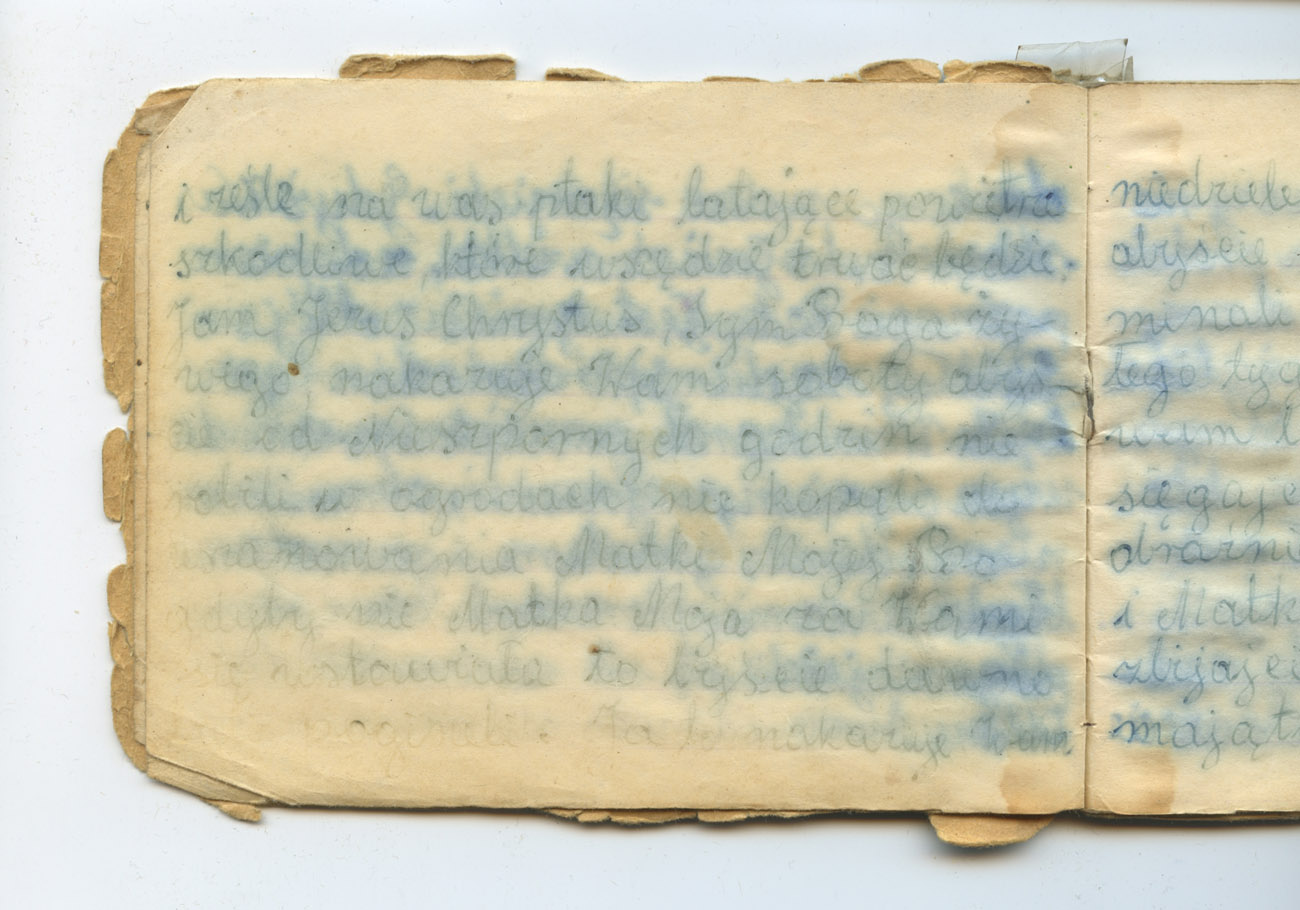 i ześle na was ptaki latające powietrze
szkodliwe, które wszędzie truć będzie.
Jam Jezus Chrystus, Syn Boga ży-
wego nakazuje Wam soboty abyś-
cie od Nieszpornych godzin nie
robili w ogrodach nie kopali do
uszanowania Matki Mojej Bo
gdyby nie Matka Moja za Wami
się wstawiała to byście dawno
poginęli. Ja to nakazuje Wam
niedziele
abyście
minali
tego
wam
się
i Matk
zbijajcie